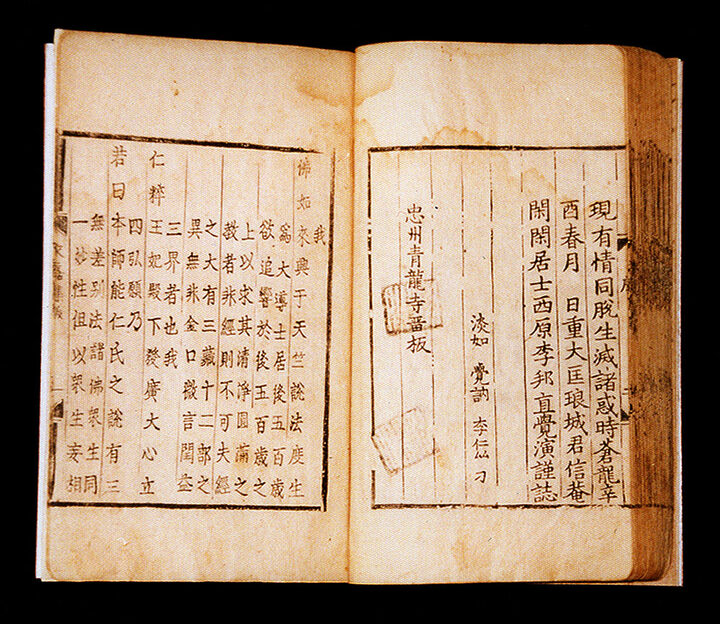 現有情同脫生滅諸惑時蒼龍辛
酉春月 日重大匡琅城君信菴
閑閑居士西原李邦直覺演謹誌
淡如 覺訥 李仁 刀
忠州青龍寺畱板
我
佛如來興于天竺說法度生
爲大導士居後五百歲
欲追響於後五百歲之
上以求其清淨圓滿之
教者非經則不可夫經
之大有三藏十二部之
異無非金口微言闡
三界者也我
仁粹王妃殿下發廣大心立
四弘願乃
若曰本師能仁氏之說有三
無差別法諸佛衆生同
一妙性但以衆生妄相